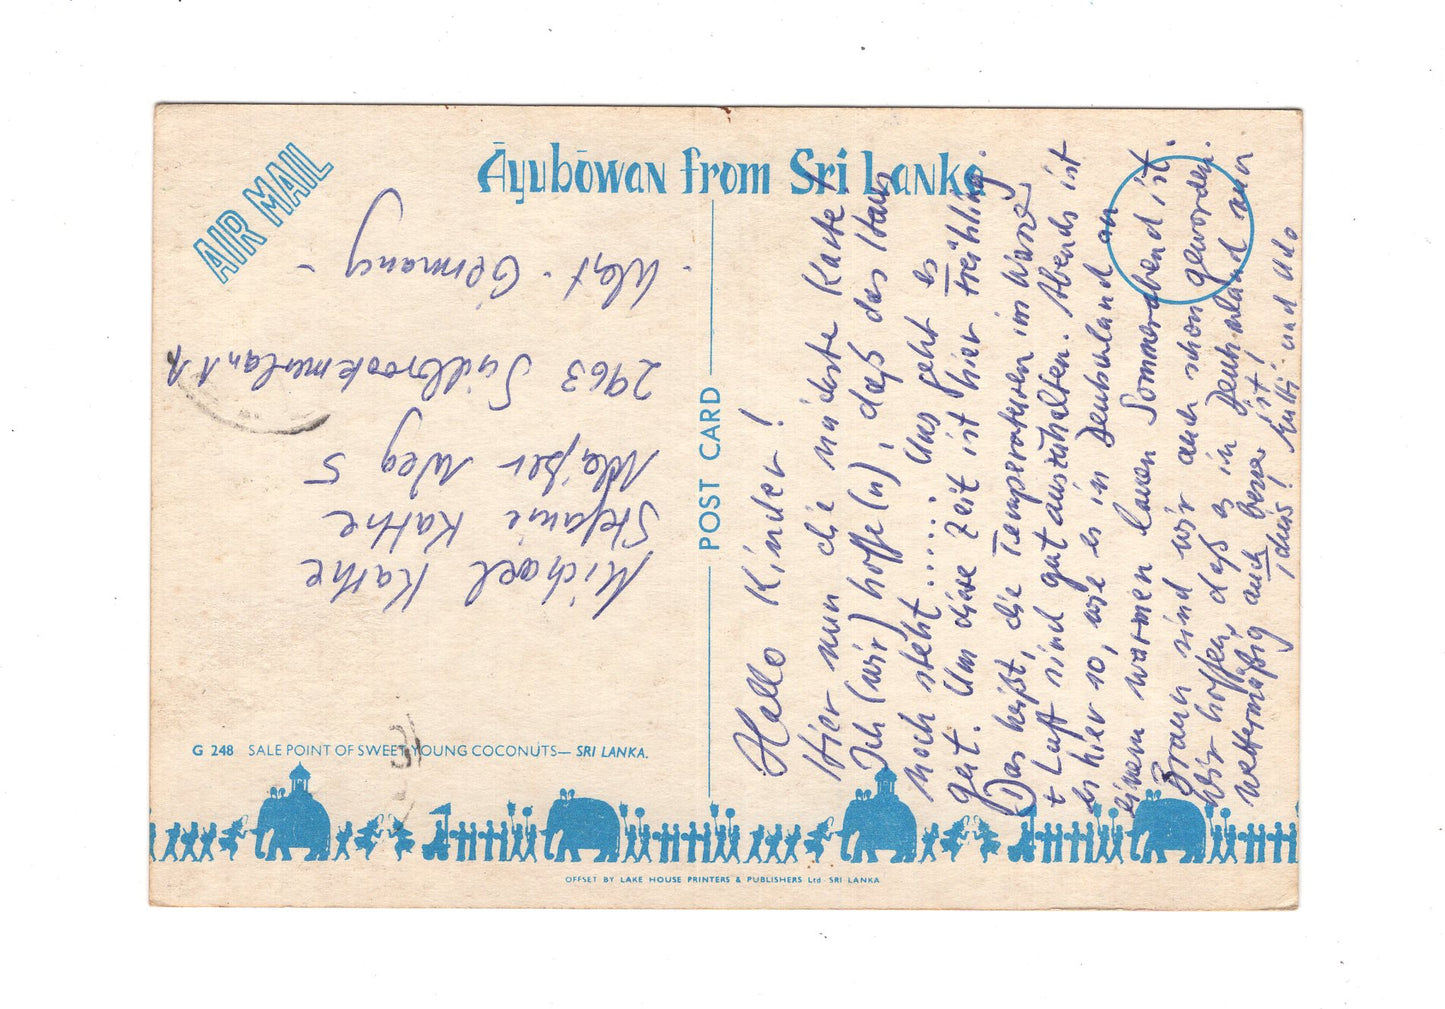 AIR MAIL
Āyubōwan from Sri Lanka
POST CARD
Michael Kathe
Stefanie Kathe
Weg 5
2963 Südbrookmerland 1
- West - Germany -
Hallo Kinder!
Hier nun die nächste Karte!
Ich (wir) hoffe(n), daß das Haus
noch steht..... Uns geht es
gut. Um diese Zeit ist hier Frühling.
Das heißt, die Temperaturen im Wasser
+ Luft sind gut auszuhalten. Abends ist
es hier so, wie es in Deutschland an
einem warmen lauen Sommerabend ist.
Braun sind wir auch schon geworden.
Wir hoffen, daß es in Deutschland nun
wettermäßig auch besser ist!
Tschüs! Mutti und Udo
G 248 SALE POINT OF SWEET YOUNG COCONUTS— SRI LANKA.
OFFSET BY LAKE HOUSE PRINTERS & PUBLISHERS Ltd SRI LANKA